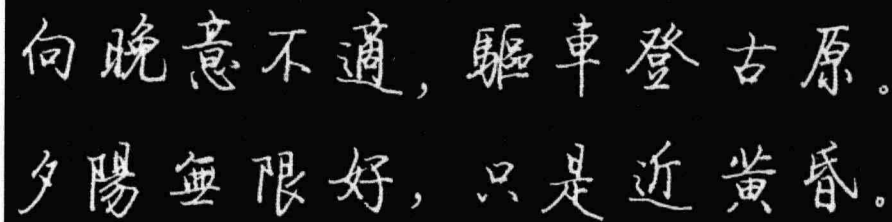 向晚意不適，驅車登古原。
夕陽無限好，只是近黃昏。